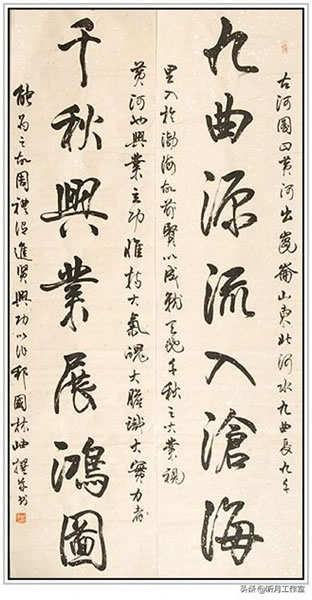 古河图曰黄河出崑崙山東北河水九曲長九千
九曲源流入滄海
里入於渤海前賢以成就千秋之大業視
黄河興業立功唯大氣魄大膽識大實力者
千秋興業展鴻圖
能为之故周禮謂進賢興功以作邦國林岫撰并书
头条@听月工作室